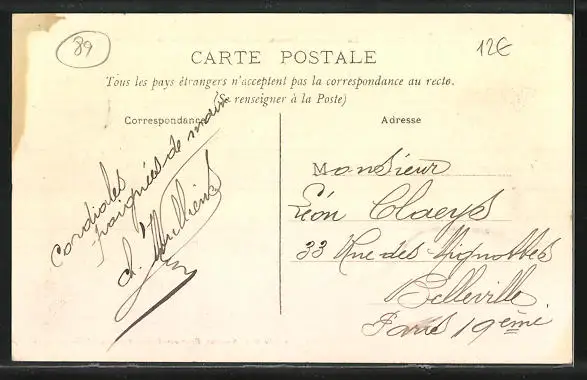 89
12€
CARTE POSTALE
Tous les pays étrangers n'acceptent pas la correspondance au recto.
(Se renseigner à la Poste)
Correspondance
Cordiales
poignées de main
Ch.
Adresse
Monsieur
Léon Claeys
33 Rue des Mignottes
Belleville
Paris 19ème